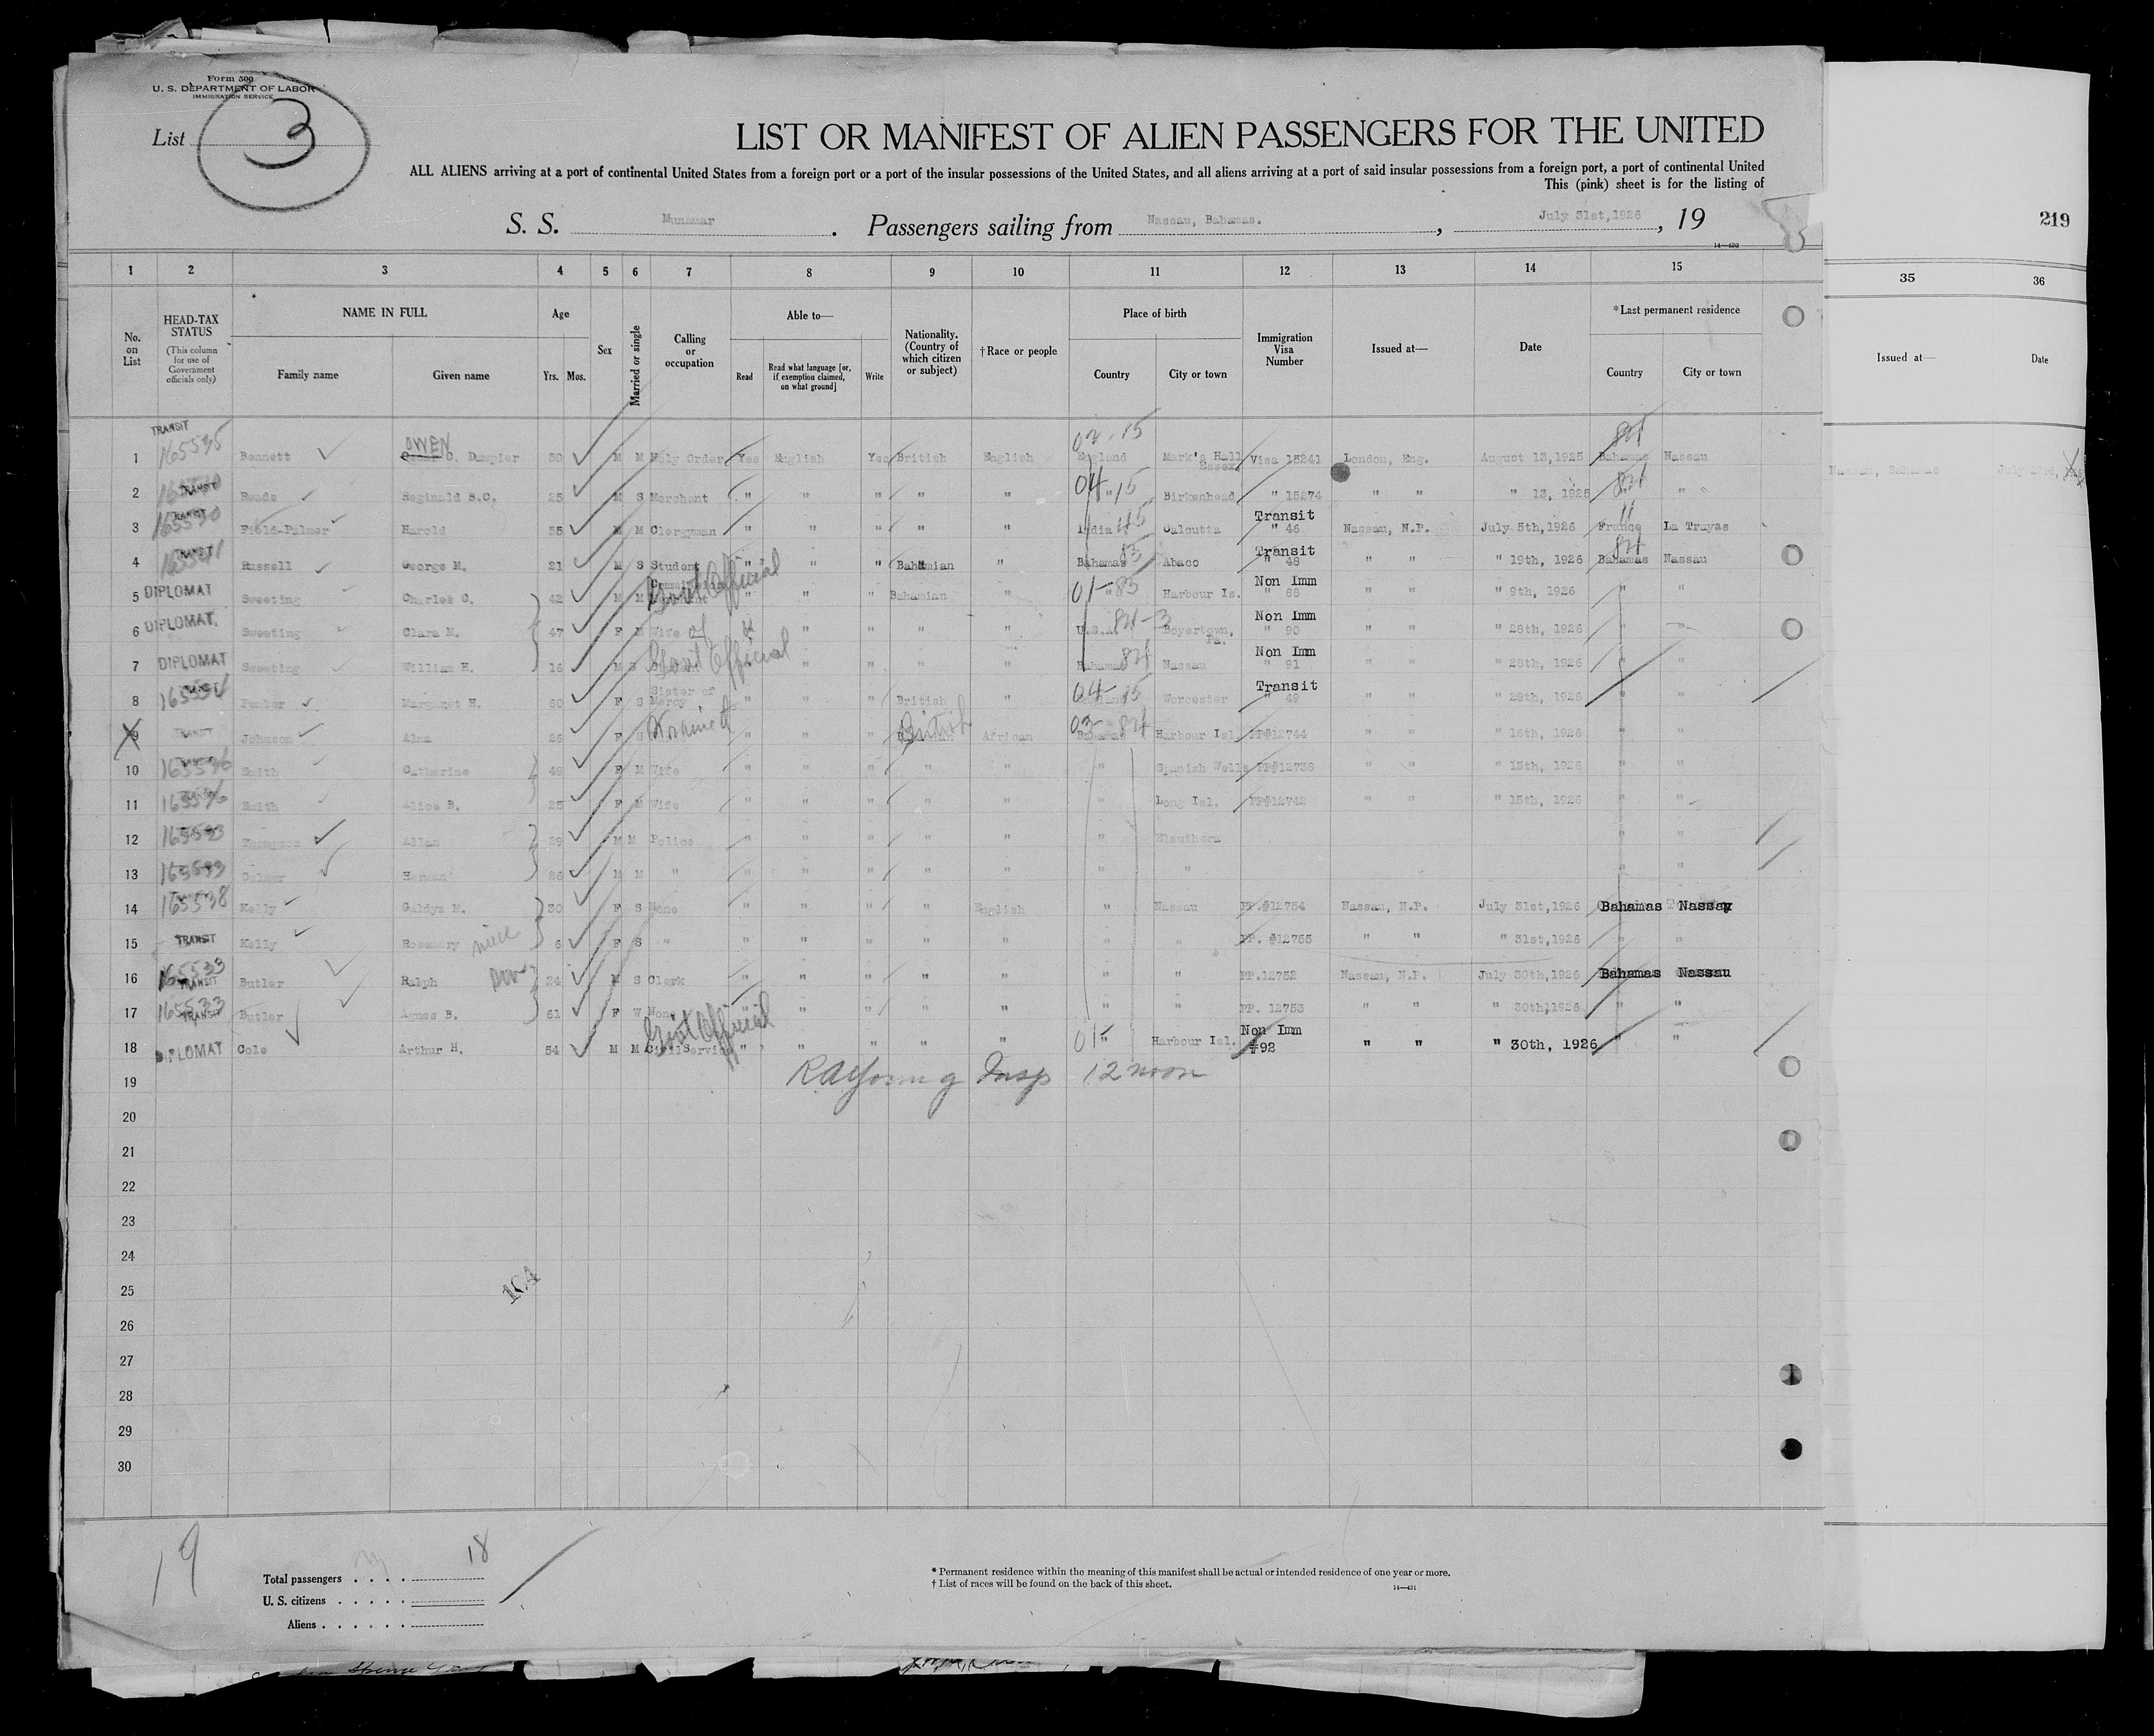 Form 500
U. S. DEPARTMENT OF LABOR
IMMIGRATION SERVICE
List 3
LIST OR MANIFEST OF ALIEN PASSENGERS FOR THE UNITED
ALL ALIENS arriving at a port of continental United States from a foreign port or a port of the insular possessions of the United States, and all aliens arriving at a port of said insular possessions from a foreign port, a port of continental United
This (pink) sheet is for the listing of
S. S. Munamar. Passengers sailing from Nassau, Bahamas., July 31st,1926, 19
14—430
219
1 2 3 4 5 6 7 8 9 10 11 12 13 14 15 35 36
No. on List
HEAD-TAX STATUS
(This column for use of Government officials only)
NAME IN FULL
Family name Given name
Age
Yrs. Mos.
Sex
Married or single
Calling or occupation
Able to—
Read Read what language [or, if exemption claimed, on what ground] Write
Nationality. (Country of which citizen or subject)
†Race or people
Place of birth
Country City or town
Immigration Visa Number
Issued at—
Date
*Last permanent residence
Country City or town
Issued at—
Date
1 TRANSIT 165535 Bennett OWEN C. Dampier 50 M M Holy Order Yes English Yes British English 02-15 England Mark's Hall Essex Visa 15241 London, Eng. August 13,1925 Bahamas Nassau Nassau, Bahamas
2 TRANSIT Reginald B.C. 25 M S Merchant " " " " " 04-15 " Birkenhead " 15274 " " " 13, 1925 " "
3 TRANSIT Field-Palmer Harold 55 M M Clergyman " " " " " India Calcutta Transit " 46 Nassau, N.P. July 5th,1926 France La Trayas
4 TRANSIT Russell George M. 21 M S Student " " " Bahamian " Bahamas Abaco Transit " 48 " " " 19th, 1926 Bahamas Nassau
5 DIPLOMAT Sweeting Charles C. 42 M M Gov't Official " " " Bahamian " 01-83 " Harbour Is. Non Imm " 88 " " " 9th, 1926 " "
6 DIPLOMAT. Sweeting Clara M. 47 F M Wife of " " " " " U.S.A. Boyertown, Pa. Non Imm " 90 " " " 28th, 1926 " "
7 DIPLOMAT Sweeting William H. 16 M S Gov't Official " " " " Bahamas Nassau Non Imm " 91 " " " 28th, 1926 " "
8 TRANSIT Margaret H. 60 F S Sister of Mercy " " " British " 04-15 Worcester Transit " 49 " " " 28th, 1926 " "
9 TRANSIT Johnson Alma 26 F S " " " British African 03-84 Bahamas Harbour Isl. PP#12744 " " " 16th, 1926 " "
10 Smith Catherine 49 F M Wife " " " " " " Spanish Wells PP#12738 " " " 13th, 1926 " "
11 Smith Alice B. 25 F M Wife " " " " " " Long Isl. PP#12742 " " " 15th, 1926 " "
12 Allan 29 M M Police " " " " " " Eleuthera " "
13 Herman 26 M M " " " " " " " " " "
14 165538 Kelly Galdys M. 30 F S None " " " " English " Nassau PP.#12754 Nassau, N.P. July 31st,1926 Bahamas Nassau
15 TRANSIT Kelly Rosemary niece 6 F S " " " " " " " " PP. #12755 " " " 31st,1926 " "
16 165533 TRANSIT Butler Ralph son 24 M S Clerk " " " " " " " PP.12752 Nassau, N.P. July 30th,1926 Bahamas Nassau
17 165533 TRANSIT Butler Agnes B. 61 F W None " " " " " " " PP. 12753 " " " 30th,1926 " "
18 DIPLOMAT Cole Arthur H. 54 M M Civil Service Gov't Official " " " " " 01- " Harbour Isl. Non Imm #92 " " " 30th, 1926 " "
19 R A Young Insp 12 noon
20
21
22
23
24
25
104
26
27
28
29
30
19
Total passengers . . . . 18
U. S. citizens . . . . .
Aliens . . . . . .
* Permanent residence within the meaning of this manifest shall be actual or intended residence of one year or more.
† List of races will be found on the back of this sheet.
14—431